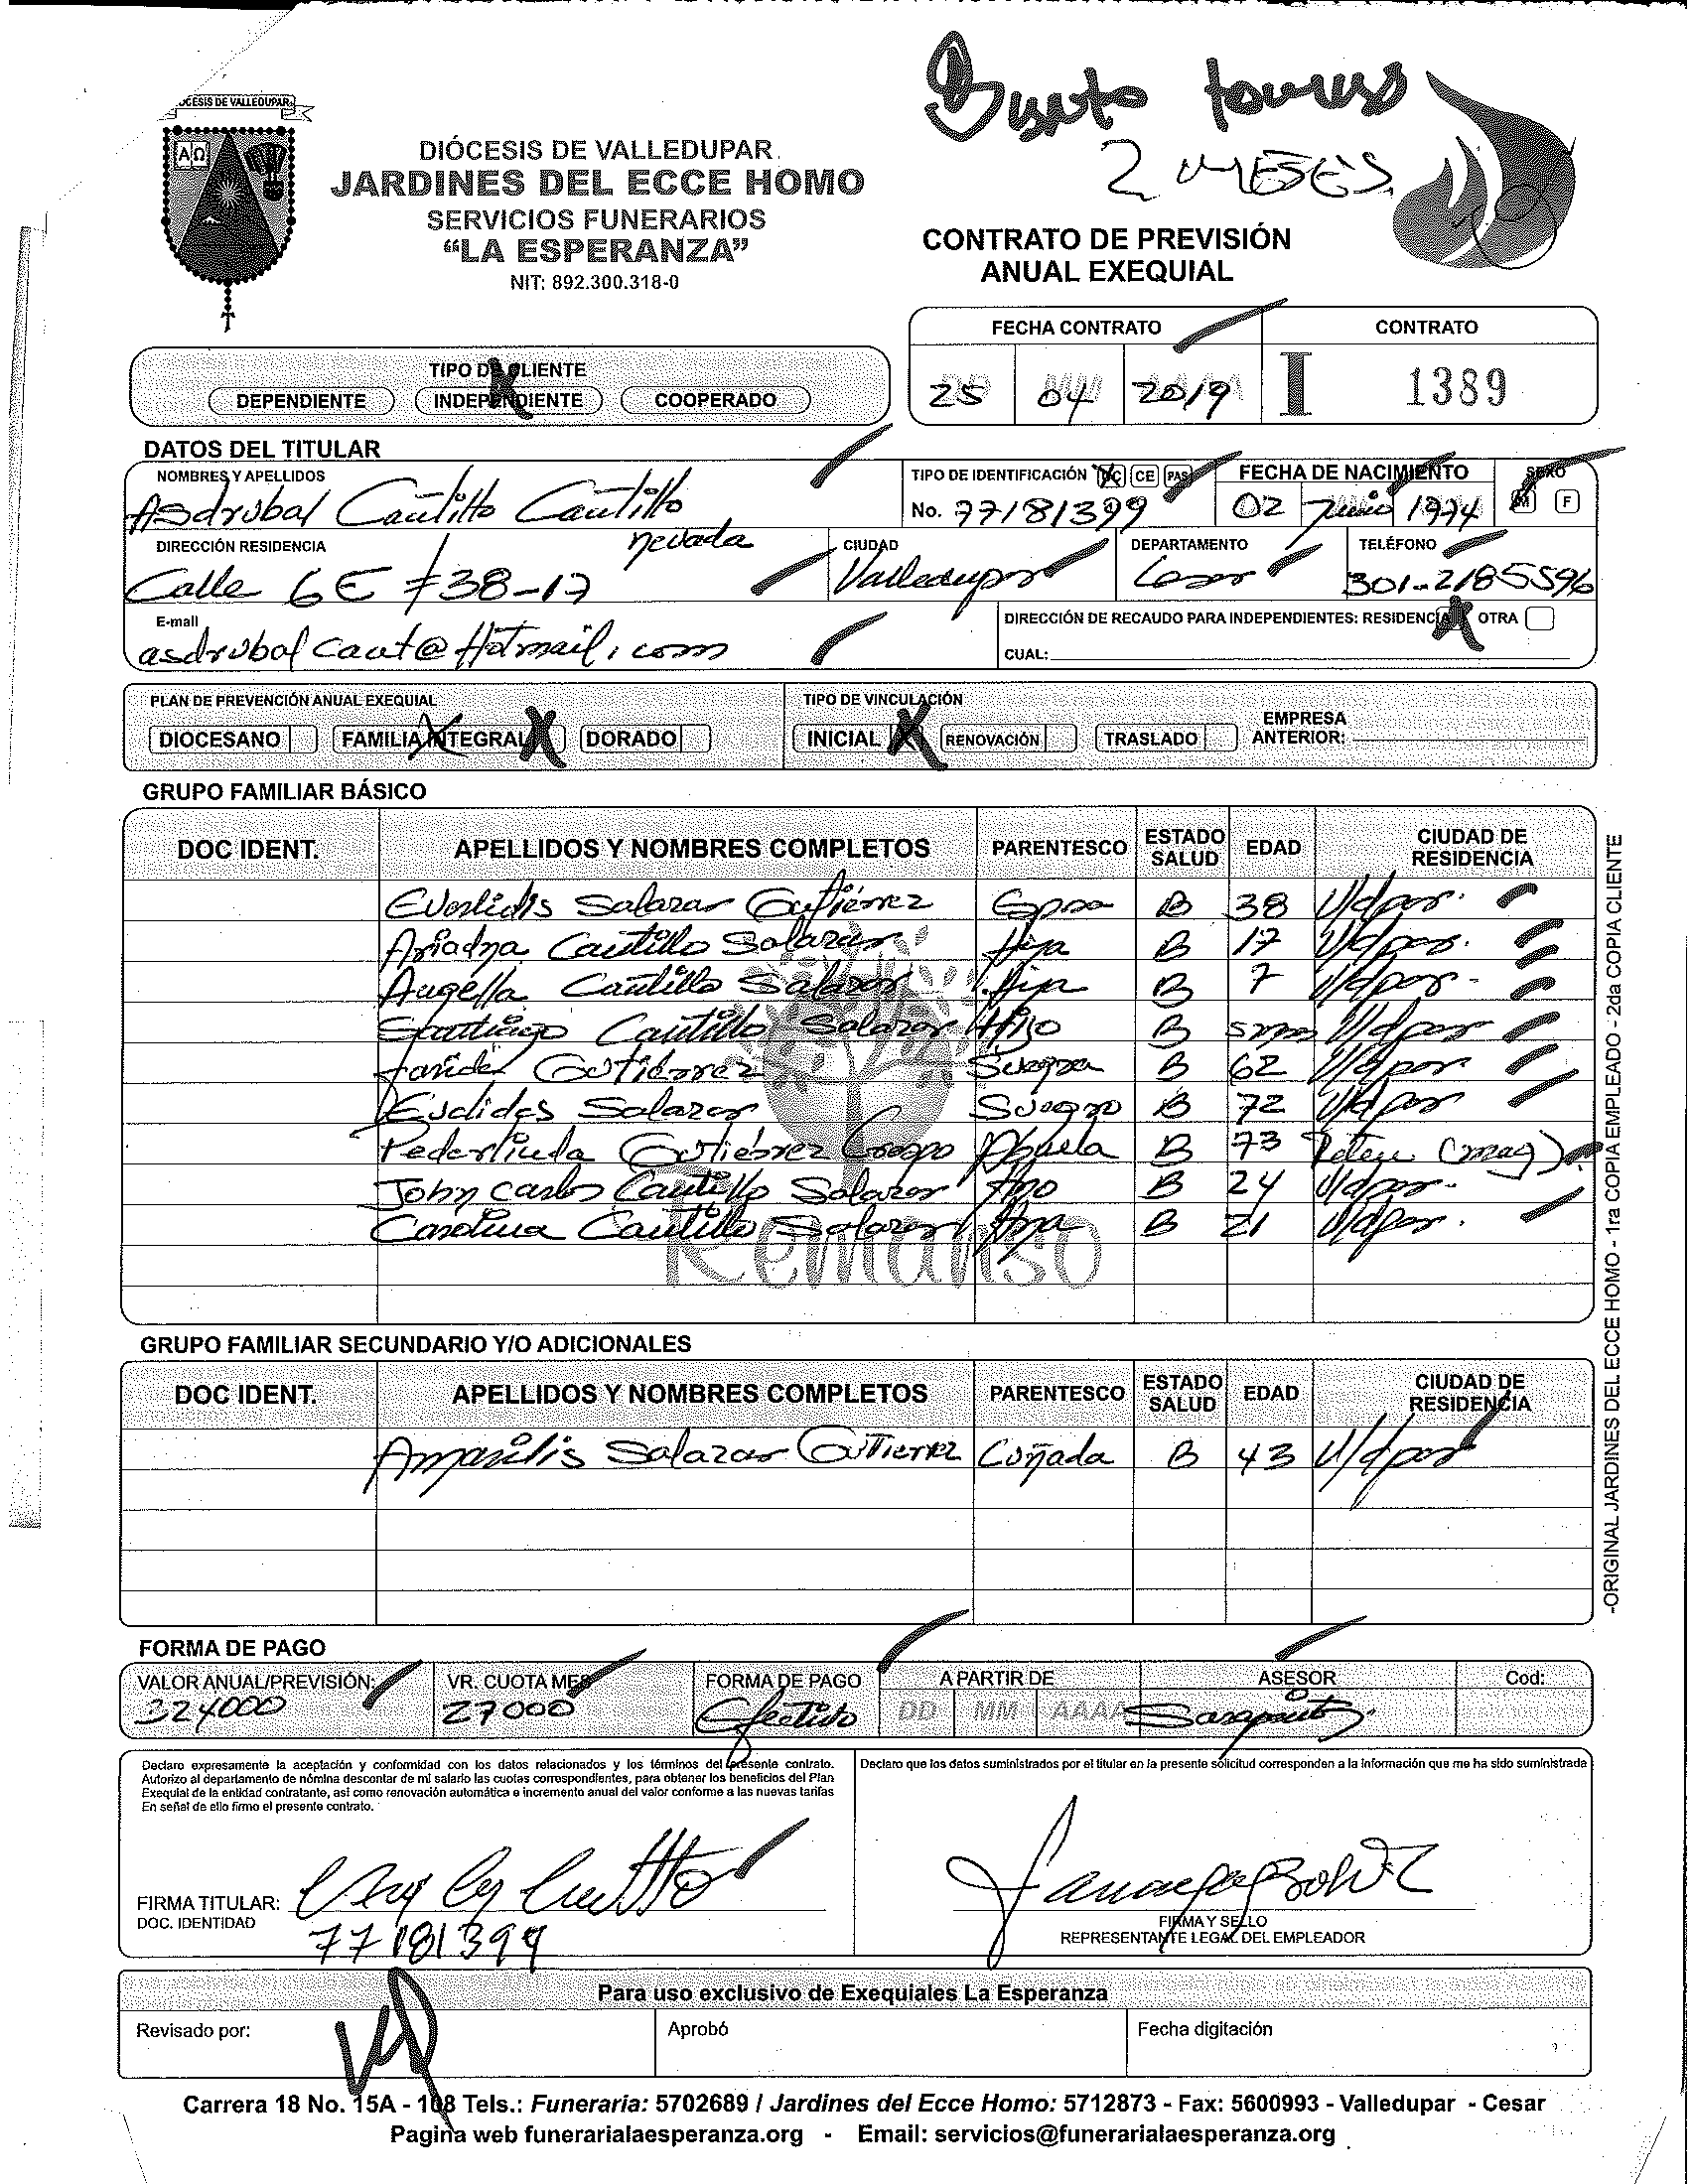 DIÓCESIS DE VALLEDUPAR
AΩ
DIÓCESIS DE VALLEDUPAR
JARDINES DEL ECCE HOMO
SERVICIOS FUNERARIOS
“LA ESPERANZA”
NIT: 892.300.318-0
2 MESES
CONTRATO DE PREVISIÓN
ANUAL EXEQUIAL
FECHA CONTRATO CONTRATO
25 04 2019 I 1389
TIPO DE CLIENTE
DEPENDIENTE INDEPENDIENTE COOPERADO
DATOS DEL TITULAR
NOMBRES Y APELLIDOS TIPO DE IDENTIFICACIÓN CC CE PAS FECHA DE NACIMIENTO SEXO
Asdrubal Cantillo Cantillo No. 77181399 02 Junio 1974 M F
DIRECCIÓN RESIDENCIA CIUDAD DEPARTAMENTO TELÉFONO
Calle 6E #38-17 nevada Valledupar Cesar 301-2185596
E-mail DIRECCIÓN DE RECAUDO PARA INDEPENDIENTES: RESIDENCIA OTRA
asdrubalcant@Hotmail.com CUAL:
PLAN DE PREVENCIÓN ANUAL EXEQUIAL TIPO DE VINCULACIÓN
DIOCESANO FAMILIA INTEGRAL DORADO INICIAL RENOVACIÓN TRASLADO EMPRESA ANTERIOR:
GRUPO FAMILIAR BÁSICO
DOC IDENT. APELLIDOS Y NOMBRES COMPLETOS PARENTESCO ESTADO SALUD EDAD CIUDAD DE RESIDENCIA
Salazar Gutiérrez Esposa B 38 V/dpar.
Ariadna Cantillo Salazar Hija B 17 V/dpar.
Angella Cantillo Salazar Hija B 7 V/dpar.
Santiago Cantillo Salazar Hijo B 5 V/dpar
Gutiérrez Suegra B 62 V/dpar
Euclides Salazar Suegro B 72 V/dpar
Gutiérrez Crespo Abuela B 73 (mag)
John Carlos Cantillo Salazar Hijo B 24 V/dpar.
Carolina Cantillo Salazar Hija B 21 V/dpar.
Remanso
GRUPO FAMILIAR SECUNDARIO Y/O ADICIONALES
DOC IDENT. APELLIDOS Y NOMBRES COMPLETOS PARENTESCO ESTADO SALUD EDAD CIUDAD DE RESIDENCIA
Amarilis Salazar Gutierrez Cuñada B 43 V/dpar
FORMA DE PAGO
VALOR ANUAL/PREVISIÓN: VR. CUOTA MES FORMA DE PAGO A PARTIR DE ASESOR Cod:
324000 27000 Efectivo DD MM AAAA
Declaro expresamente la aceptación y conformidad con los datos relacionados y los términos del presente contrato.
Autorizo al departamento de nómina descontar de mi salario las cuotas correspondientes, para obtener los beneficios del Plan
Exequial de la entidad contratante, así como renovación automática e incremento anual del valor conforme a las nuevas tarifas
En señal de ello firmo el presente contrato.
Declaro que los datos suministrados por el titular en la presente solicitud corresponden a la información que me ha sido suministrada
FIRMA TITULAR:
DOC. IDENTIDAD
77181399
FIRMA Y SELLO
REPRESENTANTE LEGAL DEL EMPLEADOR
Para uso exclusivo de Exequiales La Esperanza
Revisado por: Aprobó Fecha digitación
Carrera 18 No. 15A - 108 Tels.: Funeraria: 5702689 / Jardines del Ecce Homo: 5712873 - Fax: 5600993 - Valledupar - Cesar
Pagina web funerarialaesperanza.org - Email: servicios@funerarialaesperanza.org
-ORIGINAL JARDINES DEL ECCE HOMO - 1ra COPIA EMPLEADO - 2da COPIA CLIENTE